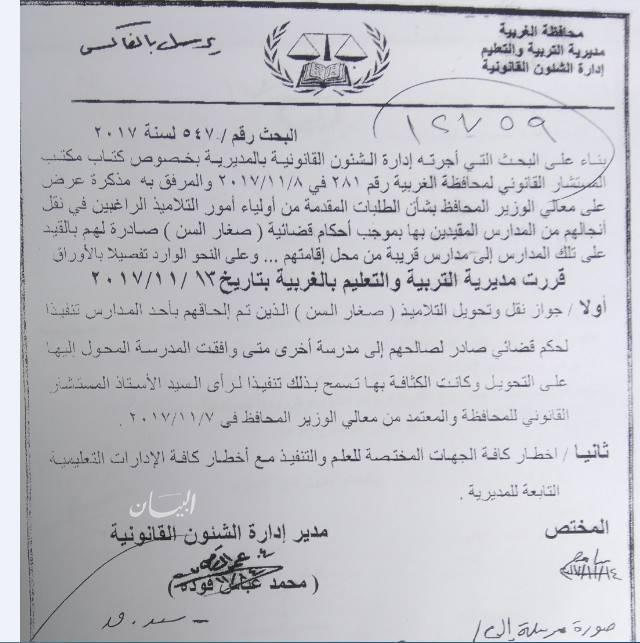 محافظة الغربية
مديرية التربية والتعليم
إدارة الشئون القانونية
يرسل بالفاكس
١٢٧٥٩
البحث رقم / ٥٤٧ لسنة ٢٠١٧
بناء على البحث التي أجرته إدارة الشئون القانونية بالمديرية بخصوص كتاب مكتب
المستشار القانوني لمحافظة الغربية رقم ٢٨١ في ٢٠١٧/١١/٨ والمرفق به مذكرة عرض
على معالي الوزير المحافظ بشأن الطلبات المقدمة من أولياء أمور التلاميذ الراغبين في نقل
أنجالهم من المدارس المقيدين بها بموجب أحكام قضائية ( صغار السن ) صادرة لهم بالقيد
على تلك المدارس إلى مدارس قريبة من محل إقامتهم ... وعلى النحو الوارد تفصيلا بالأوراق
قررت مديرية التربية والتعليم بالغربية بتاريخ ١٣ /١١ /٢٠١٧
أولا / جواز نقل وتحويل التلاميذ ( صغار السن ) الذين تم إلحاقهم بأحد المدارس تنفيذا
لحكم قضائي صادر لصالحهم إلى مدرسة أخرى متى وافقت المدرسة المحول إليها
على التحويل وكانت الكثافة بها تسمح بذلك تنفيذا لرأى السيد الأستاذ المستشار
القانوني للمحافظة والمعتمد من معالي الوزير المحافظ فى ٢٠١٧/١١/٧ .
ثانيا / اخطار كافة الجهات المختصة للعلم والتنفيذ مع أخطار كافة الإدارات التعليمية
التابعة للمديرية .
البيان
المختص
مدير إدارة الشئون القانونية
( محمد عباس فودة )
صورة مرسلة إلى /